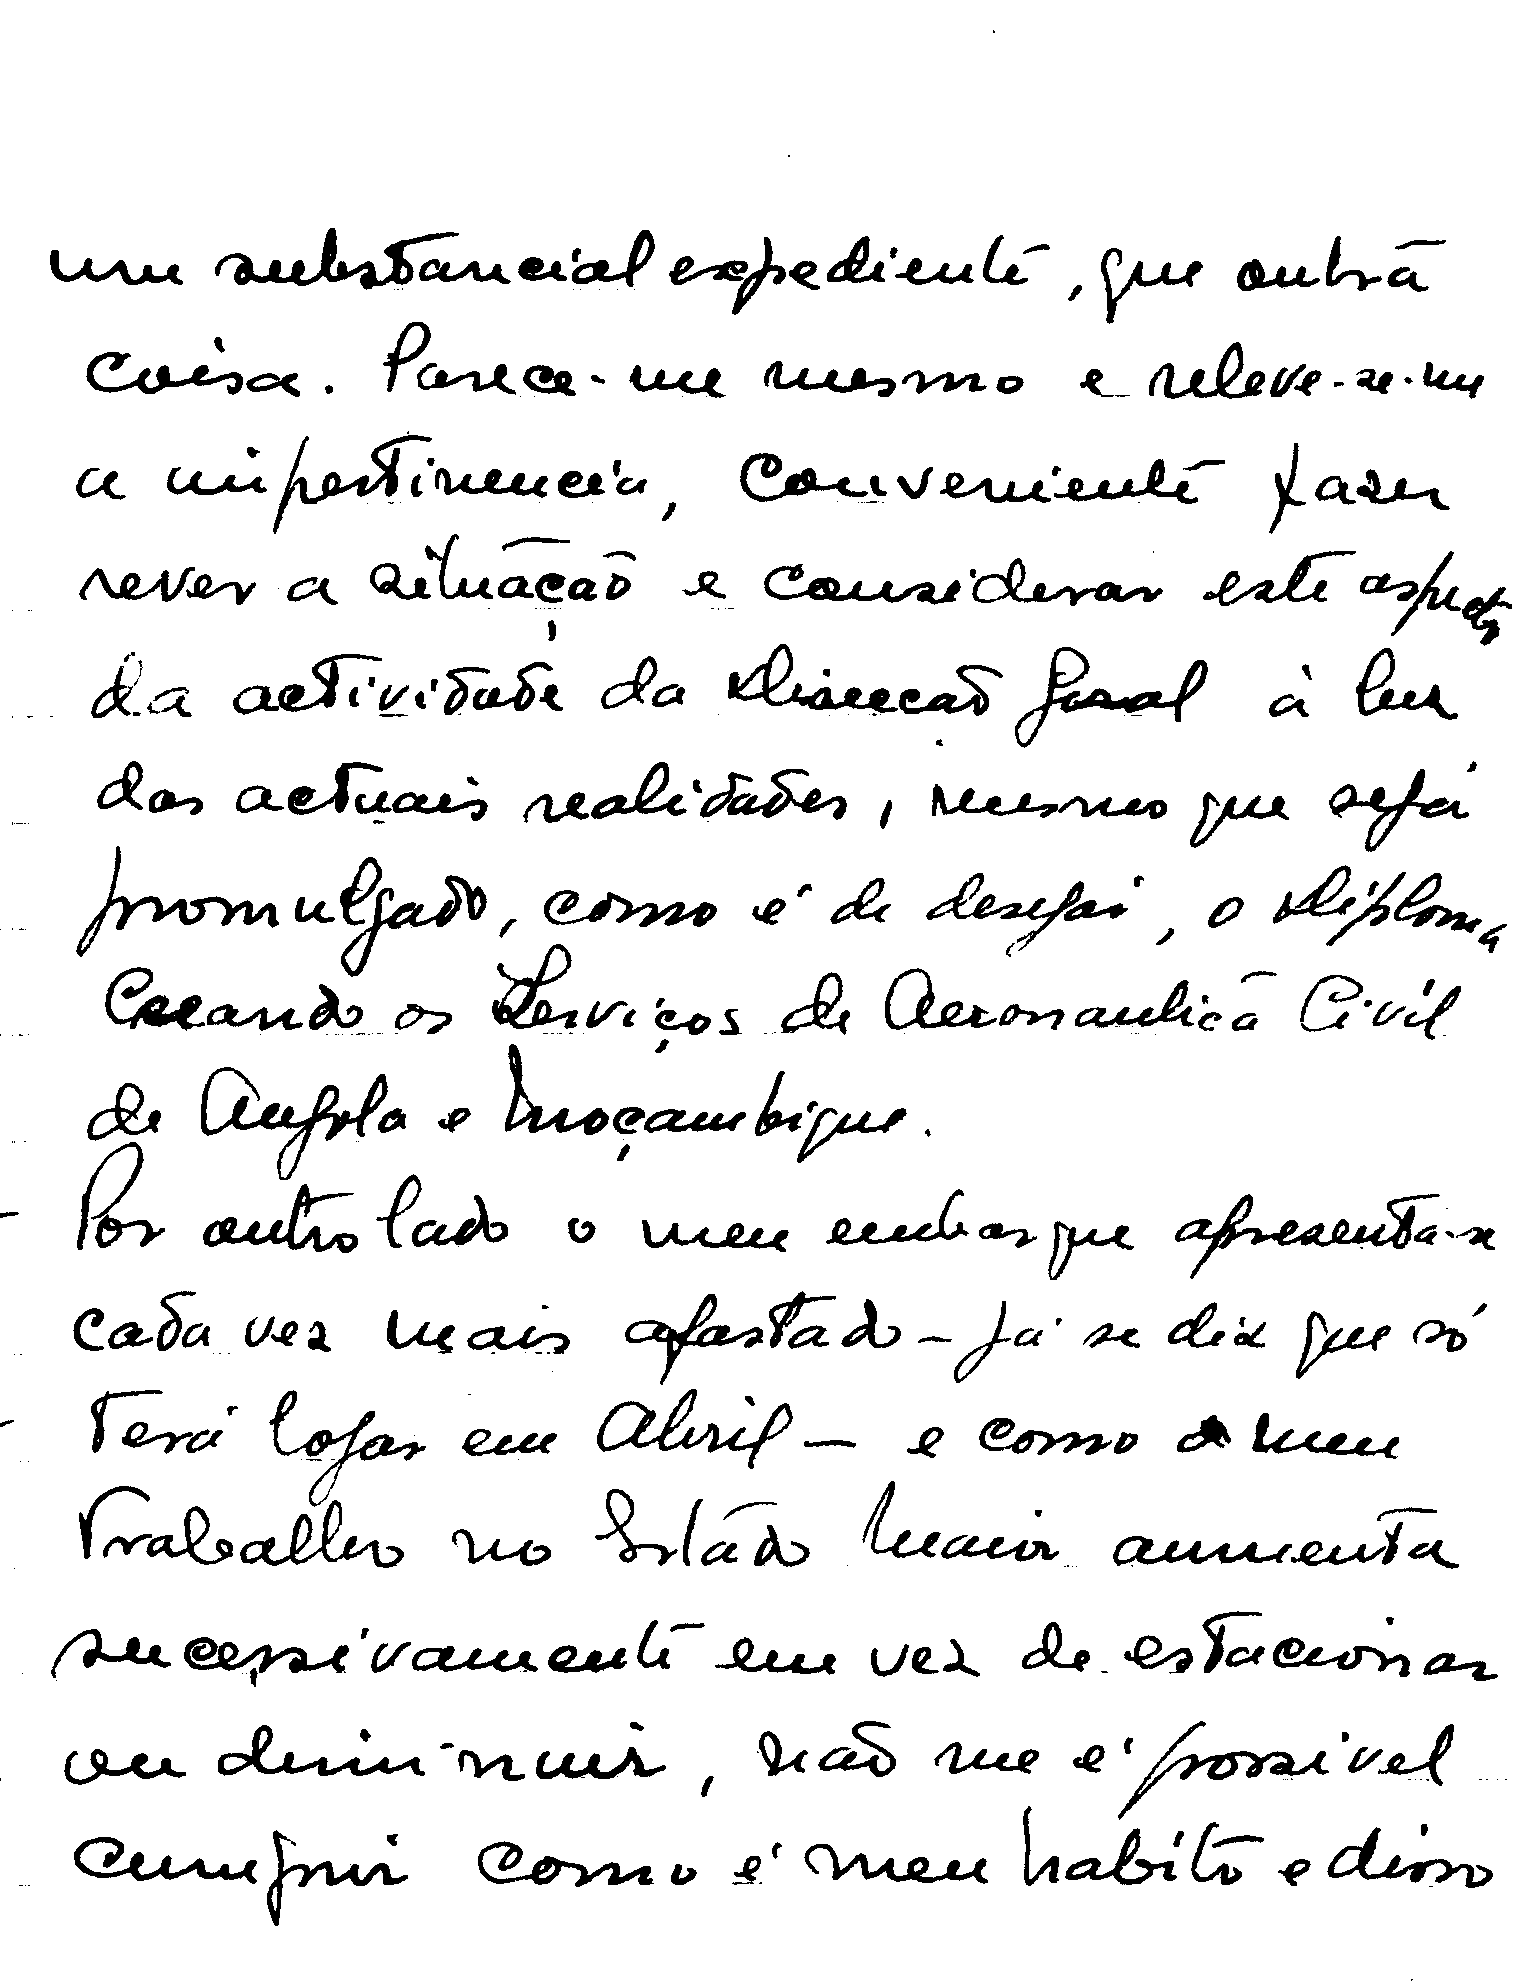 um substancial expediente, que outra
coisa. Parece-me mesmo e releve-se-me
a impertinencia, conveniente fazer
rever a situação e considerar este aspecto
da actividade da Direcção Geral à luz
das actuais realidades, mesmo que seja
promulgado, como é de desejar, o Diploma
Creando os Serviços de Aeronautica Civil
de Angola e Moçambique.
Por outro lado o meu embarque apresenta-se
cada vez mais afastado - já se diz que só
terá logar em Abril - e como o meu
trabalho no Estado Maior aumenta
sucessivamente em vez de estacionar
ou diminuir, não me é possivel
cumprir como é meu habito e disso